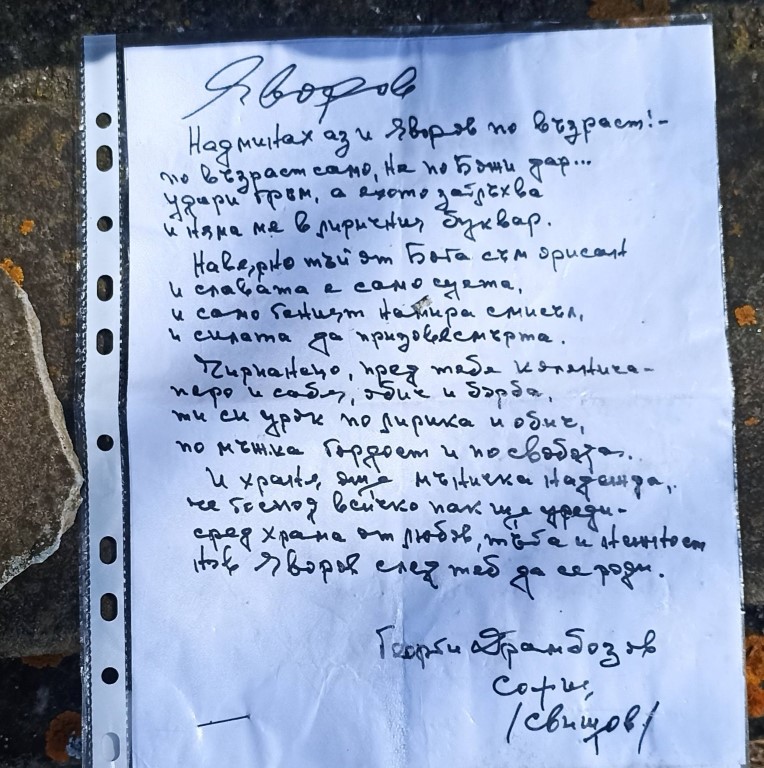 Яворов
Надминах аз и Яворов по възраст! -
по възраст само, не по Божи дар...
удари гръм, а ехото заглъхва
и няма ме в лиричния буквар.
Навярно тъй от Бога съм орисан
и славата е само суета,
и само геният намира смисъл,
и силата да призове смърта.
Чирпанецо, пред тебе коленича -
перо и сабя, обич и борба,
ти си урок по лирика и обич,
по мъжка гордост и по свобода.
И храня още мъничка надежда,
че Господ всичко пак ще уреди -
сред храма от любов, тъга и нежност
нов Яворов след теб да се роди.
Георги Драмбозов
София
/Свищов/